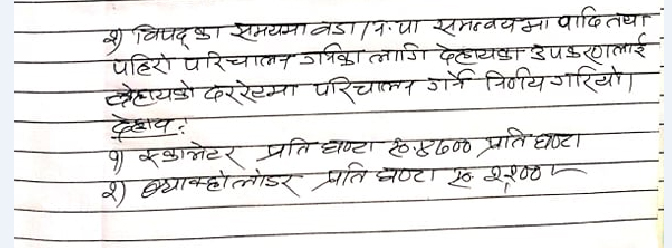 २) विपद्का समयमा वडा/न.पा समन्वयमा बाढि तथा
पहिरो परिचालन गर्नका लागि देहायका उपकरणलाई
देहायको दररेटमा परिचालन गर्ने निर्णय गरियो।
देहाय:
१) स्काभेटर प्रति घण्टा रु. प्रति घण्टा
२) ब्याकहो लोडर प्रति घण्टा रु २२००/-